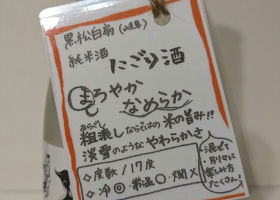 黒松白扇(岐阜)
純米酒
にごり酒
まろやか
も
なめらか
あらごし
粗漉しならではの米の旨み!!
淡雪のようなやわらかさ
◇度数/17度
◇冷◎・常温○・燗×
混ぜて
別々に
楽しみ方
たくさん!